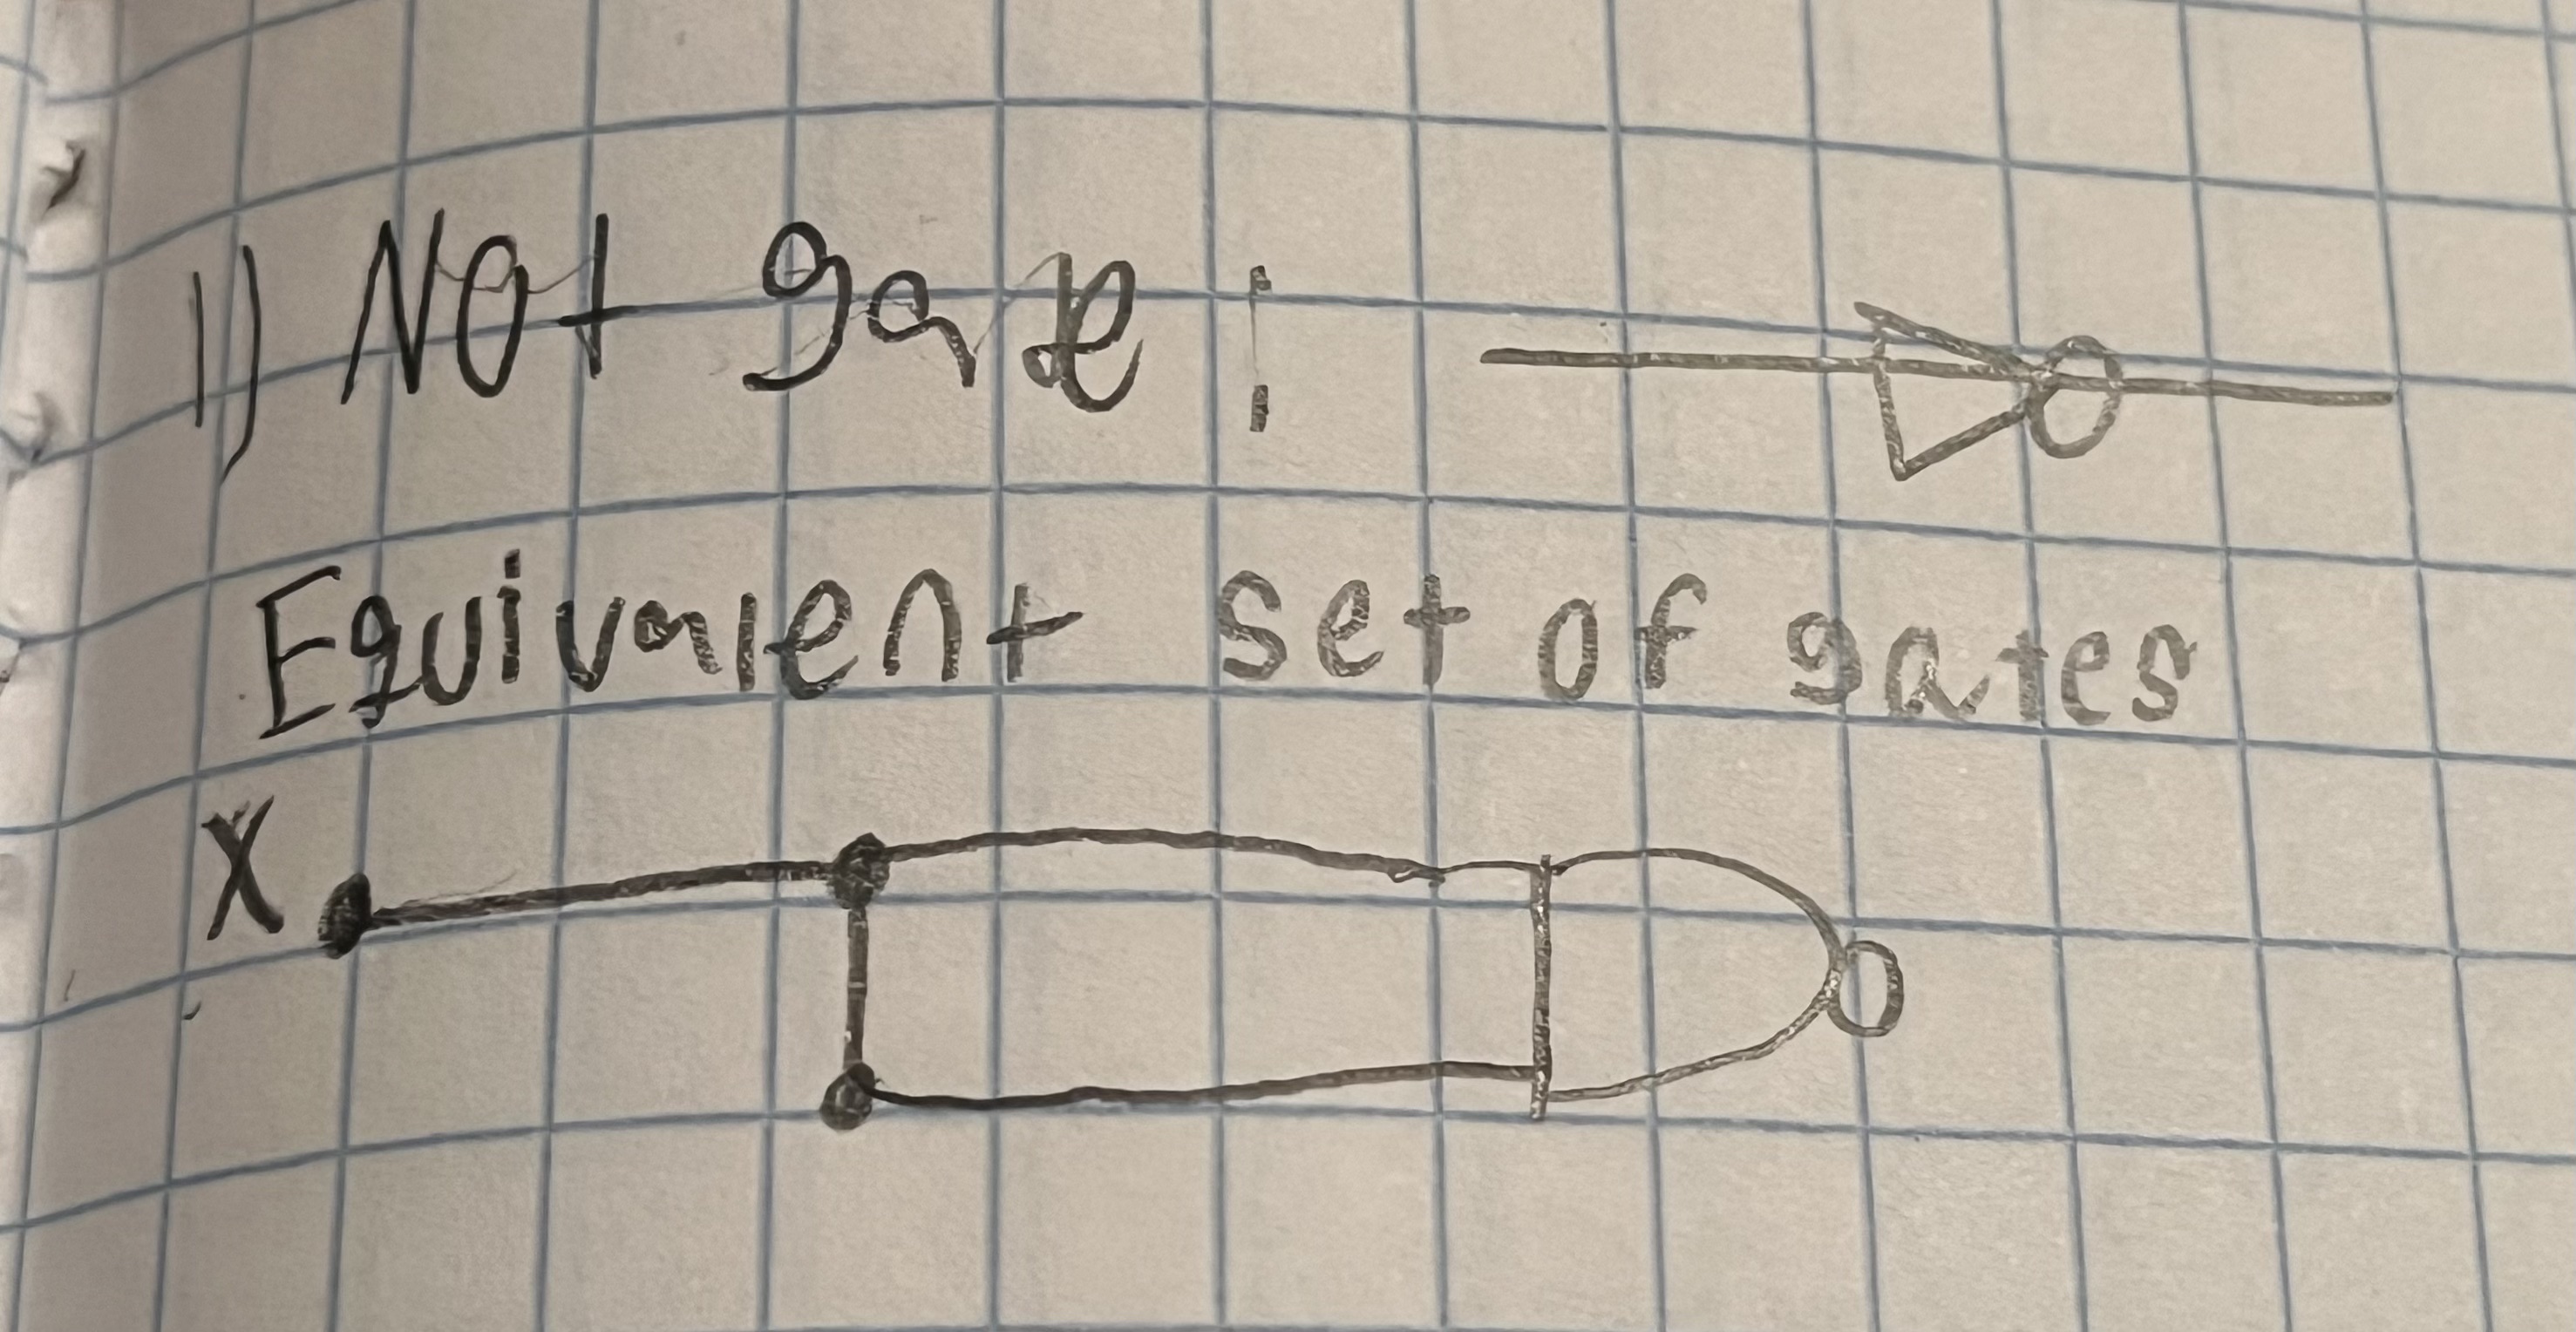 1) Not gate :
Equivalent set of gates
X